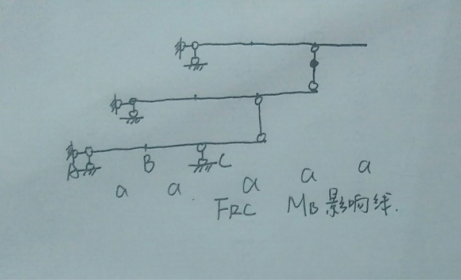 A B C
a a a a a
FRC MB影响线.